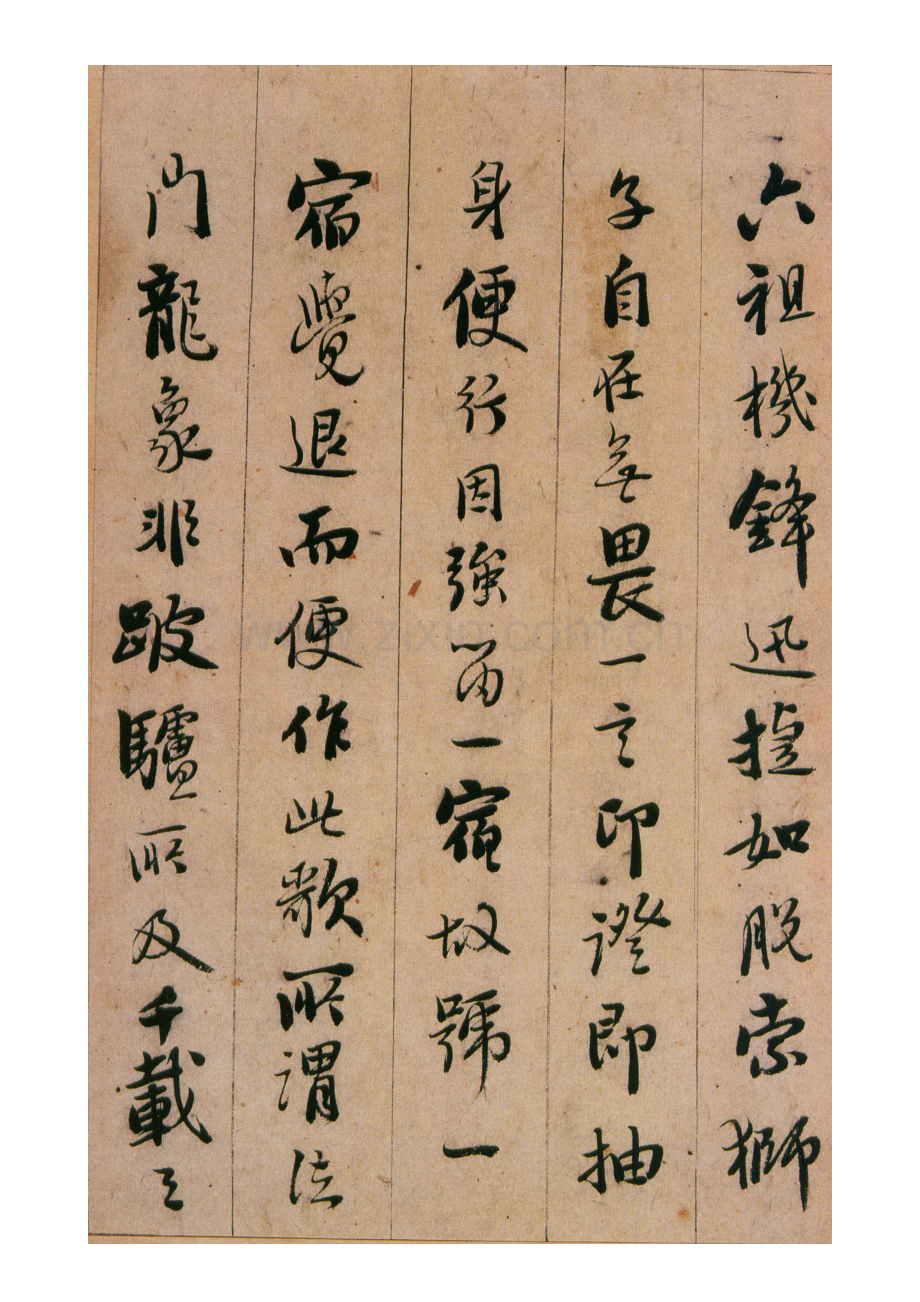 六祖機鋒迅捷如脫索獅
子自在無畏一言印證即抽
身便行因強留一宿故號一
宿覺退而便作此歌所謂法
門龍象非跛驢所及千載之
www.zixin.com.cn